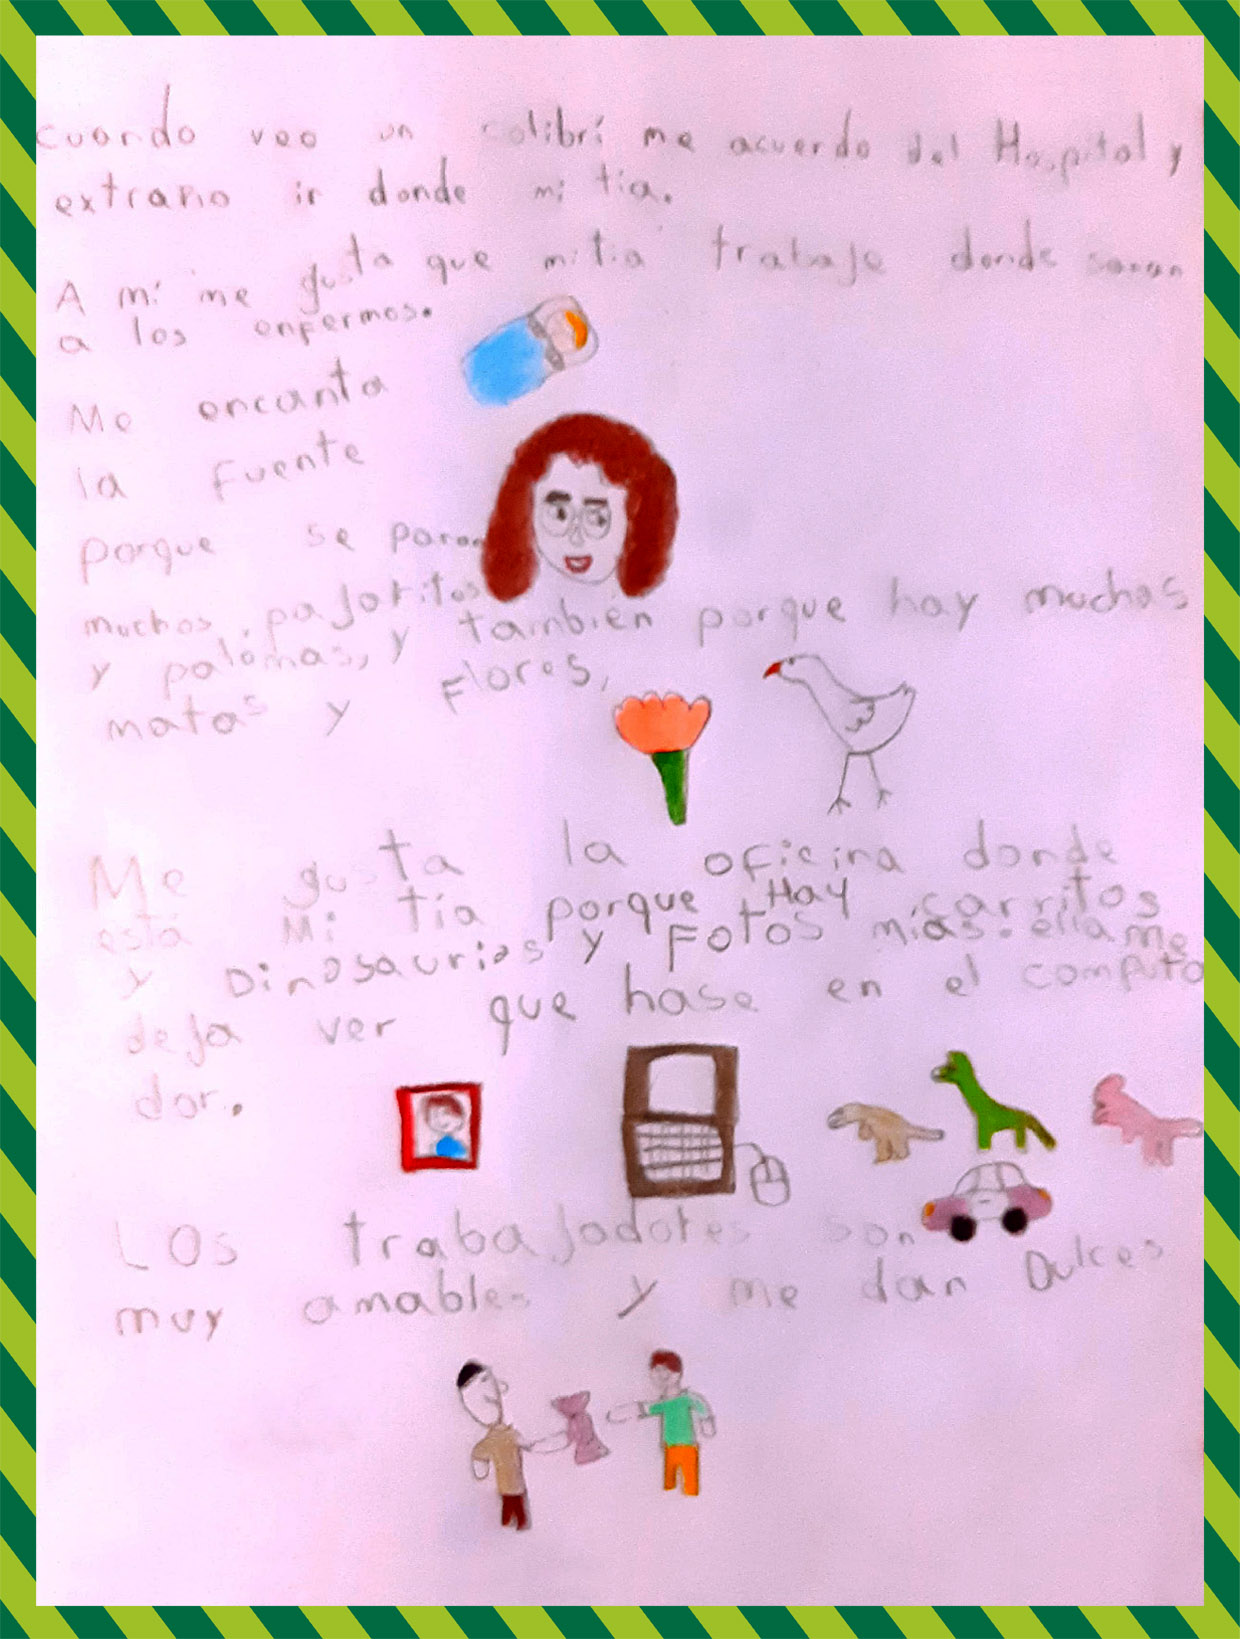 cuando veo un colibrí me acuerdo del Hospital y
extraño ir donde mi tia.
A mí me gusta que mi tia trabaje donde sanan
a los enfermos.
Me encanta
la fuente
porque se paran
muchos pajaritos
y palomas, y también porque hay muchas
matas y Flores,
Me gusta la oficina donde
está Mi tía porque Hay carritos
y Dinosaurios y Fotos mías. ella me
deja ver que hase en el computa
dor.
Los trabajadores son
muy amables y me dan Dulces